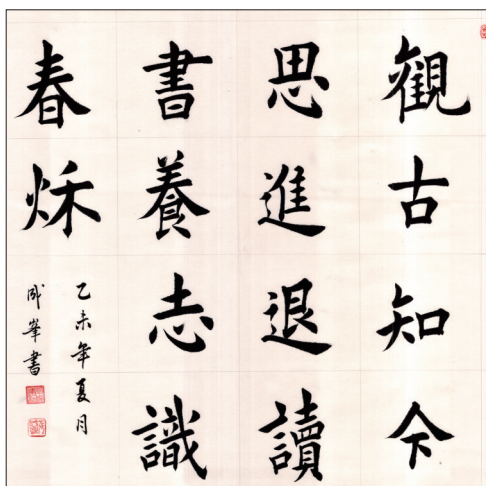 觀古知今
思進退讀
書養志識
春秌
乙未年夏月
成峯書